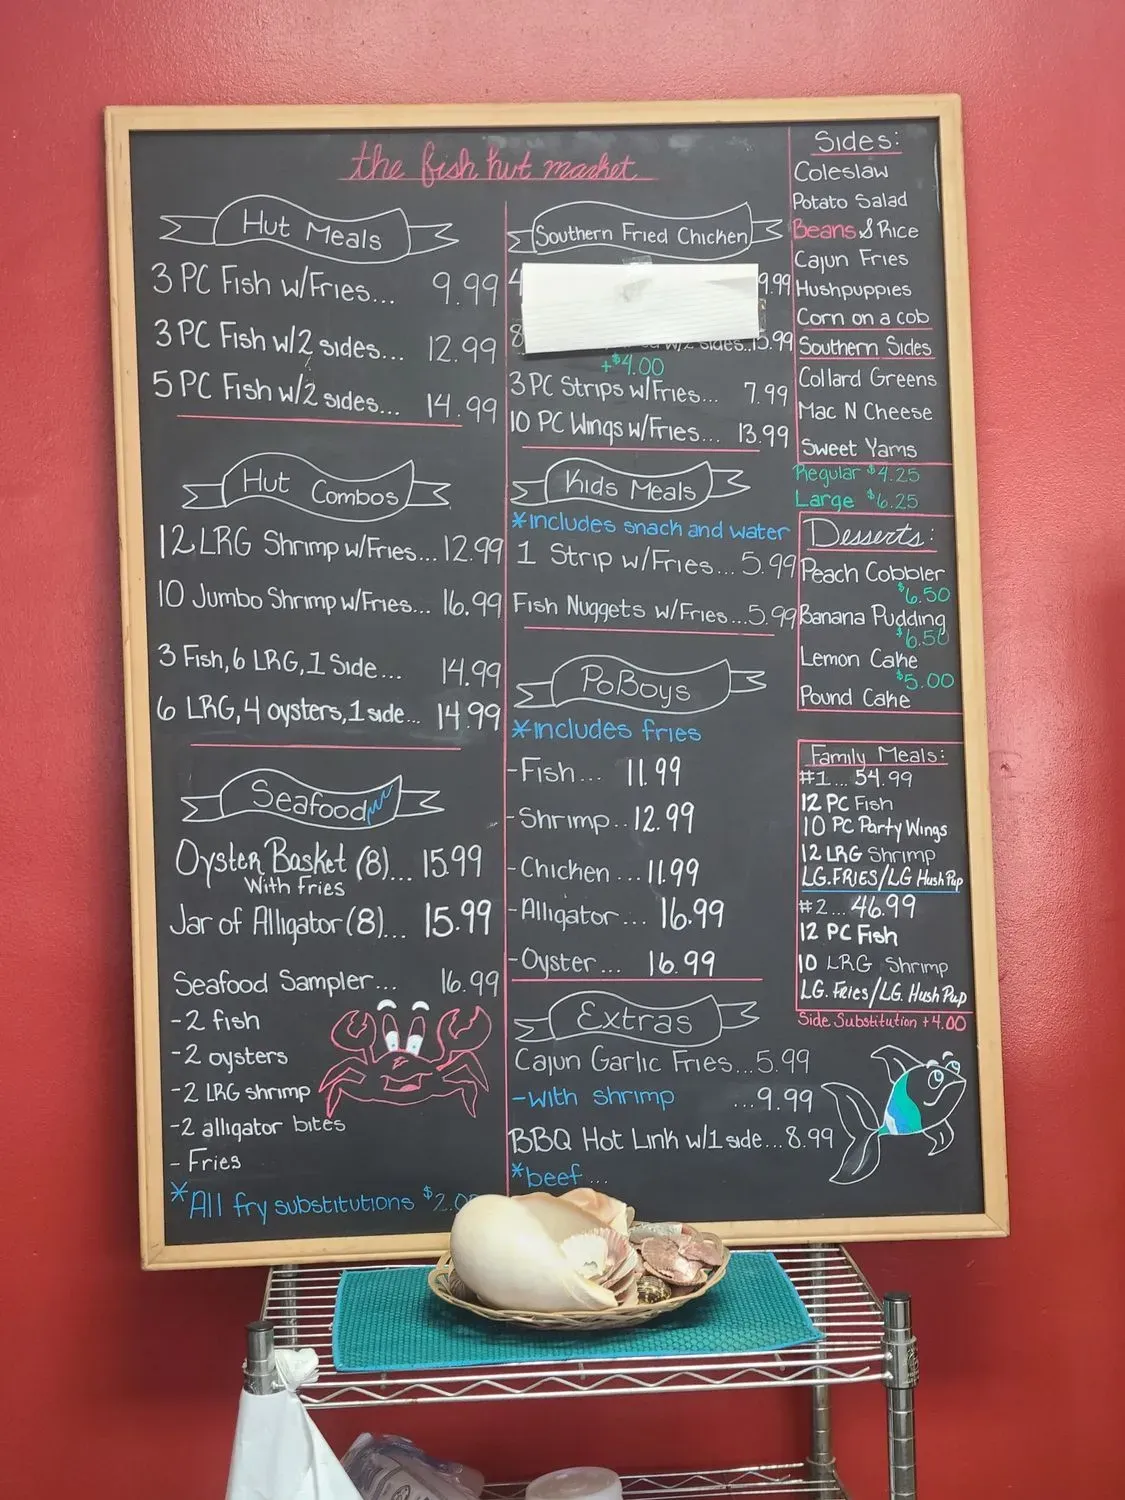 the fish hut market
Hut Meals
3 PC Fish w/Fries... 9.99
3 PC Fish w/2 sides... 12.99
5 PC Fish w/2 sides... 14.99
Hut Combos
12 LRG Shrimp w/Fries... 12.99
10 Jumbo Shrimp w/Fries... 16.99
3 Fish, 6 LRG, 1 Side... 14.99
6 LRG, 4 oysters, 1 side... 14.99
Seafood
Oyster Basket (8)... 15.99
With Fries
Jar of Alligator (8)... 15.99
Seafood Sampler... 16.99
-2 fish
-2 oysters
-2 LRG shrimp
-2 alligator bites
- Fries
*All fry substitutions $2.0
Southern Fried Chicken
4 9.99
8 w/2 sides..15.99
+$4.00
3 PC Strips w/Fries... 7.99
10 PC Wings w/Fries... 13.99
Kids Meals
*includes snack and water
1 Strip w/Fries... 5.99
Fish Nuggets w/Fries...5.99
PoBoys
*includes fries
-Fish... 11.99
-Shrimp.. 12.99
-Chicken ... 11.99
-Alligator... 16.99
-Oyster... 16.99
Extras
Cajun Garlic Fries...5.99
-with shrimp ...9.99
BBQ Hot Link w/1 side...8.99
*beef...
Sides:
Coleslaw
Potato Salad
Beans & Rice
Cajun Fries
Hushpuppies
Corn on a cob
Southern Sides
Collard Greens
Mac N Cheese
Sweet Yams
Regular $4.25
Large $6.25
Desserts:
Peach Cobbler
$6.50
Banana Pudding
$6.50
Lemon Cake
$5.00
Pound Cake
Family Meals:
#1... 54.99
12 PC Fish
10 PC Party Wings
12 LRG Shrimp
LG. FRIES/LG Hush Pup
#2... 46.99
12 PC Fish
10 LRG Shrimp
LG. Fries/LG. Hush Pup
Side Substitution +4.00